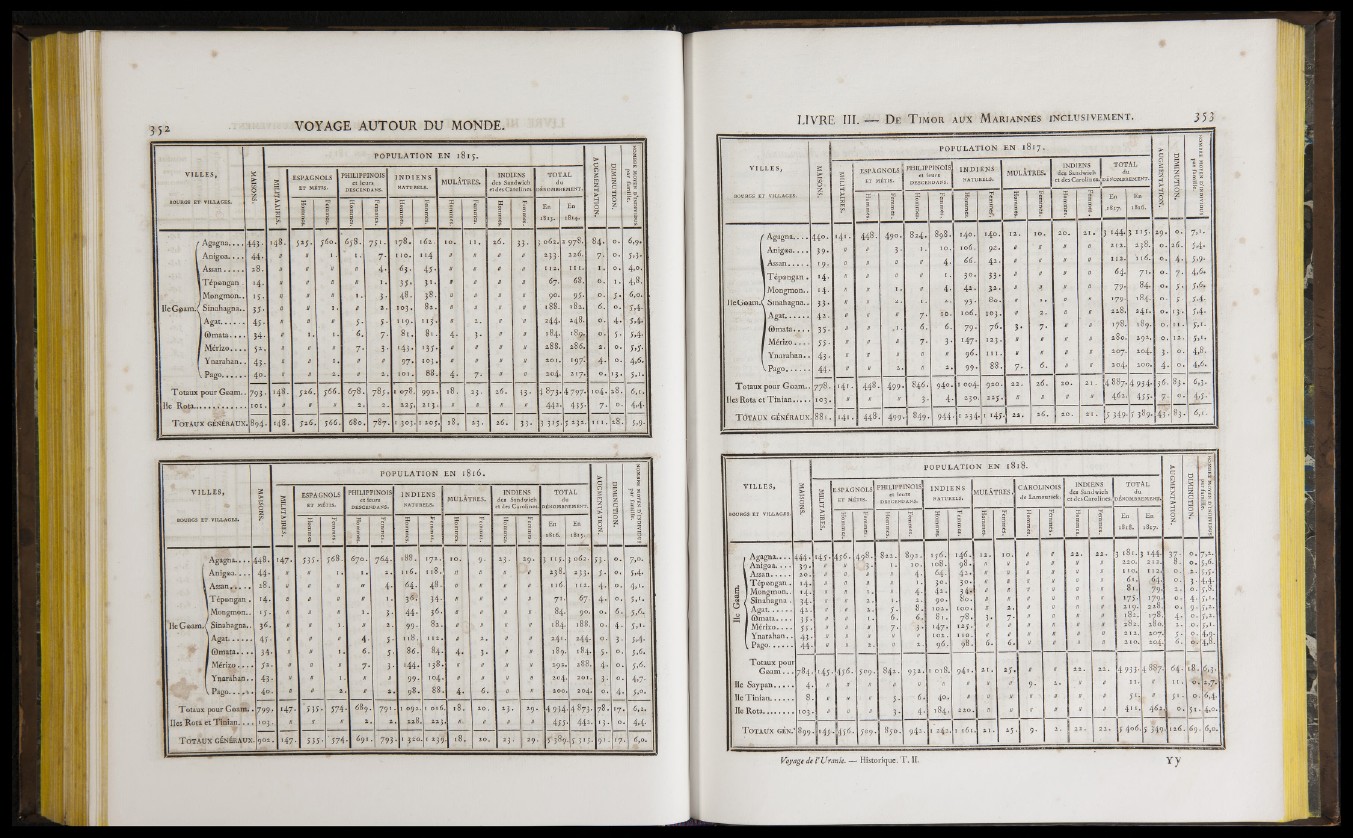 352 VOYAGE AUTOUR DU MONDE.
POPULATION EN 1815.
VILLES,
BOURGS ET VILLAGES.
MAISONS.
MILITAIRES.
ESPAGNOLS ET MÉTIS.
PHILIPPINOIS et leurs DESCENDANS.
INDIENS NATURELS.
MULÂTRES.
INDIENS des Sandwich et des Carolines.
TOTAL du DÉNOMBREMENT.
AUGMENTATION.
DIMINUTION.
NOMBRE MOYEN D'INDIVIDUS par famille.
Hommes. Femmes. Hommes. Femmes. Hommes. Femmes. Hommes. Femmes. Hommes. Femmes. En 1815. En 1814.
Ile Goam.
Agagna.... 443. 148. 525. 560. 658. 751. 178. 162. 10. 11. 26. 33. 3 062. 2 978. 84. 0. 6,9.
Anigoa.... 44. " " 1. 1. 7. 110. 114 " " " " 233. 226. 7. 0. 5,3.
Assan..... 28. " " " " 4. 63. 45. " " " " 112. 111. 1. 0. 4,0.
Tépongan. 14. " " " " 1. 35. 31. " " " " 67. 68. 0. 1. 4,8.
Mongmon.. 15. " " " 1. 3. 48. 38. " " " " 90. 95. 0. 5. 6,0.
Sinahagna.. 35. " " 1. " 2. 103. 82. " " " " 188. 182. 6. 0. 5,4.
Agat...... 45. " " " 5. 5. 119. 113. " 2. " " 244. 248. 0. 4. 5,4.
Oumata.... 34. " 1. 1. 6. 7. 81. 81. 4. 3. " " 184. 189. 0. 5. 5,4.
Mérizo.... 52. " " " 7. 3. 143. 135. " " " " 288. 286. 2. 0. 5,5.
Ynarahan.. 43. " " 1. " " 97. 103. " " " " 201. 197. 4. 0. 4,6.
Pago...... 40. " " 2. " 2. 101. 88. 4. 7. " " 204. 217. 0. 13. 5,1.
Totaux pour Goam.. 793. 148. 526. 566. 678. 785. 1 078. 992. 18. 23. 26. 33. 4 873. 4 797. 104. 28. 6,1.
Ile Rota............ 101. " " " 2. 2. 225. 213. " " " " 442. 435. 7. 0. 4,4.
TOTAUX GÉNÉRAUX. 894. 148. 526. 566. 680. 787. 1 303. 1 205. 18. 23. 26. 33. 5 315. 5 232. 111. 28. 5,9.
POPULATION EN 1816.
VILLES,
BOURGS ET VILLAGES.
MAISONS.
MILITAIRES.
ESPAGNOLS ET MÉTIS.
PHILIPPINOIS et leurs DESCENDANS.
INDIENS NATURELS.
MULÂTRES.
INDIENS des Sandwich et des Carolines.
TOTAL du DÉNOMBREMENT.
AUGMENTATION.
DIMINUTION.
NOMBRE MOYEN D'INDIVIDUS par famille.
Hommes. Femmes. Hommes. Femmes. Hommes. Femmes. Hommes. Femmes. Hommes. Femmes. En 1816. En 1815.
Ile Goam.
Agagna.... 448. 147. 535. 568. 670. 764. 188. 172. 10. 9. 23. 29. 3 115. 3 062. 53. 0. 7,0.
Anigoa.... 44. " " 1. 1. 2. 116. 118. " " " " 238. 233. 5. 0. 5,4.
Assan..... 28. " " " " 4. 64. 48. " " " " 116. 112. 4. 0. 4,1.
Tépongan. 14. " " " " 1. 36. 34. " " " " 71. 67. 4. 0. 5,1.
Mongmon.. 15. " " " 1. 3. 44. 36. " " " " 84. 90. 0. 6. 5,6.
Sinahagna.. 36. " " 1. " 2. 99. 82. " " " " 184. 188. 0. 4. 5,1.
Agat...... 45. " " " 4. 5. 118. 112. " 2. " " 241. 244. 0. 3. 5,4.
Oumata.... 34. " " 1. 6. 5. 86. 84. 4. 3. " " 189. 184. 5. 0. 5,6.
Mérizo.... 52. " " " 7. 3. 144. 138. " " " " 292. 288. 4. 0. 5,6.
Ynarahan.. 43. " " 1. " " 99. 104. " " " " 204. 201. 3. 0. 4,7.
Pago...... 40. " " 2. " 2. 98. 88. 4. 6. " " 200. 204. 0. 4. 5,0.
Totaux pour Goam.. 799. 147. 535. 574. 689. 791. 1 092. 1 016. 18. 20. 23. 29. 4 934. 4 873. 78. 17. 6,2.
Iles Rota et Tinian.... 103. " " " 2. 2. 228. 223. " " " " 455. 442. 13. 0. 4,4.
TOTAUX GÉNÉRAUX. 902. 147. 535. 574. 691. 793. 1 320. 1 239. 18. 20. 23. 29. 5 389. 5 315. 91. 17. 6,0.
LIVRE III. — DE TIMOR AUX MARIANNES INCLUSIVEMENT. 353
POPULATION EN 1817.
VILLES,
BOURGS ET VILLAGES.
MAISONS.
MILITAIRES.
ESPAGNOLS ET MÉTIS.
PHILIPPINOIS et leurs DESCENDANS.
INDIENS NATURELS.
MULÂTRES.
INDIENS des Sandwich et des Carolines.
TOTAL du DÉNOMBREMENT.
AUGMENTATION.
DIMINUTION.
NOMBRE MOYEN D'INDIVIDUS par famille.
Hommes. Femmes. Hommes. Femmes. Hommes. Femmes. Hommes. Femmes. Hommes. Femmes. En 1817. En 1816.
Ile Goam.
Agagna.... 440. 141. 448. 490. 824. 898. 140. 140. 12. 10. 20. 21. 3 144. 3 115. 29. 0. 7,1.
Anigoa.... 39. " " 3. 1. 10. 106. 92. " " " " 212. 238. 0. 26. 5,4.
Assan..... 19. " " " " 4. 66. 42. " " " " 112. 116. 0. 4. 5,9.
Tépongan. 14. " " " " 1. 30. 33. " " " " 64. 71. 0. 7. 4,6.
Mongmon.. 14. " " 1. " 4. 42. 32. " " " " 79. 84. 0. 5. 5,6.
Sinahagna.. 33. " " 2. 1. 2. 93. 80. " 1. " " 179. 184. 0. 5. 5,4.
Agat...... 42. " " " 7. 10. 106. 103. " 2. " " 228. 241. 0. 13. 5,4.
Oumata.... 35. " " 1. 6. 6. 79. 76. 3. 7. " " 178. 189. 0. 11. 5,1.
Mérizo.... 55. " " " 7. 3. 147. 123. " " " " 280. 292. 0. 12. 5,1.
Ynarahan.. 43. " " " " " 96. 111. " " " " 207. 204. 3. 0. 4,8.
Pago...... 44. " " 2. " 2. 99. 88. 7. 6. " " 204. 200. 4. 0. 4,6.
Totaux pour Goam.. 778. 141. 448. 499. 846. 940. 1 004. 920. 22. 26. 20. 21. 4 887. 4 954. 36. 83. 6,3.
Iles Rota et Tinian..... 103. " " " 3. 4. 230. 225. " " " " 462. 455. 7. 0. 4,5.
TOTAUX GÉNÉRAUX. 881. 141. 448. 499. 849. 944. 1 234. 1 145. 22. 26. 20. 21. 5 349. 5 389. 43. 83. 6,1.
POPULATION EN 1818.
VILLES,
BOURGS ET VILLAGES.
MAISONS.
MILITAIRES.
ESPAGNOLS ET MÉTIS.
PHILIPPINOIS et leurs DESCENDANS.
INDIENS NATURELS.
MULÂTRES.
CAROLINOIS de Lamoursek.
INDIENS des Sandwich et des Carolines.
TOTAL du DÉNOMBREMENT.
AUGMENTATION.
DIMINUTION.
NOMBRE MOYEN D'INDIVIDUS par famille.
Hommes. Femmes. Hommes. Femmes. Hommes. Femmes. Hommes. Femmes. Hommes. Femmes. Hommes. Femmes. En 1818. En 1817.
Ile Goam.
Agagna.... 444. 145. 456. 498. 822. 892. 156. 146. 12. 10. " " 22. 22. 3 181. 3 144. 37. 0. 7,2.
Anigoa.... 39. " " 3. 1. 10. 108. 98. " " " " " " 220. 212. 8. 0. 5,6.
Assan..... 20. " " " " 4. 64. 42. " " " " " " 110. 112. 0. 2. 5,5.
Tépongan. 14. " " " " 1. 30. 30. " " " " " " 61. 64. 0. 3. 4,4.
Mongmon.. 14. " " 1. " 4. 42. 34. " " " " " " 81. 79. 2. 0. 5,8.
Sinahagna. 34. " " 2. 1. 2. 90. 80. " " " " " " 175. 179. 0. 4. 5,1.
Agat...... 42. " " 2. 5. 8. 102. 100. " 2. " " " " 219. 228. 0. 9. 5,2.
Oumata.... 35. " " 1. 6. 6. 81. 78. 3. 7. " " " " 182. 178. 4. 0. 5,2.
Mérizo.... 55. " " " 7. 3. 147. 125. " " " " " " 282. 280. 2. 0. 5,1.
Ynarahan.. 43. " " " " " 102. 110. " " " " " " 212. 207. 5. 0. 4,9.
Pago...... 44. " " 2. " 2. 96. 98. 6. 6. " " " " 210. 204. 6. 0. 4,8.
Totaux pour Goam... 784. 145. 456. 509. 842. 932. 1 018. 941. 21. 25. " " 22. 22. 4 933. 4 887. 64. 18. 6,3.
Ile Saypan...... 4. " " " " " " " " " 9. 2. " " 11. " 11. 0. 2,7.
Ile Tinian....... 8. " " " 5. 6. 40. " " " " " " " 51. " 51. 0. 6,4.
Ile Rota........ 103. " " " 3. 4. 184. 220. " " " " " " 411. 462. 0. 51. 4,0.
TOTAUX GÉN.x 899. 145. 456. 509. 850. 942. 1 242. 1 161. 21. 25. 9. 2. 22. 22. 5 406. 5 349. 126. 69. 6,0.
Voyage de l'Uranie. — Historique. T. II. Yy